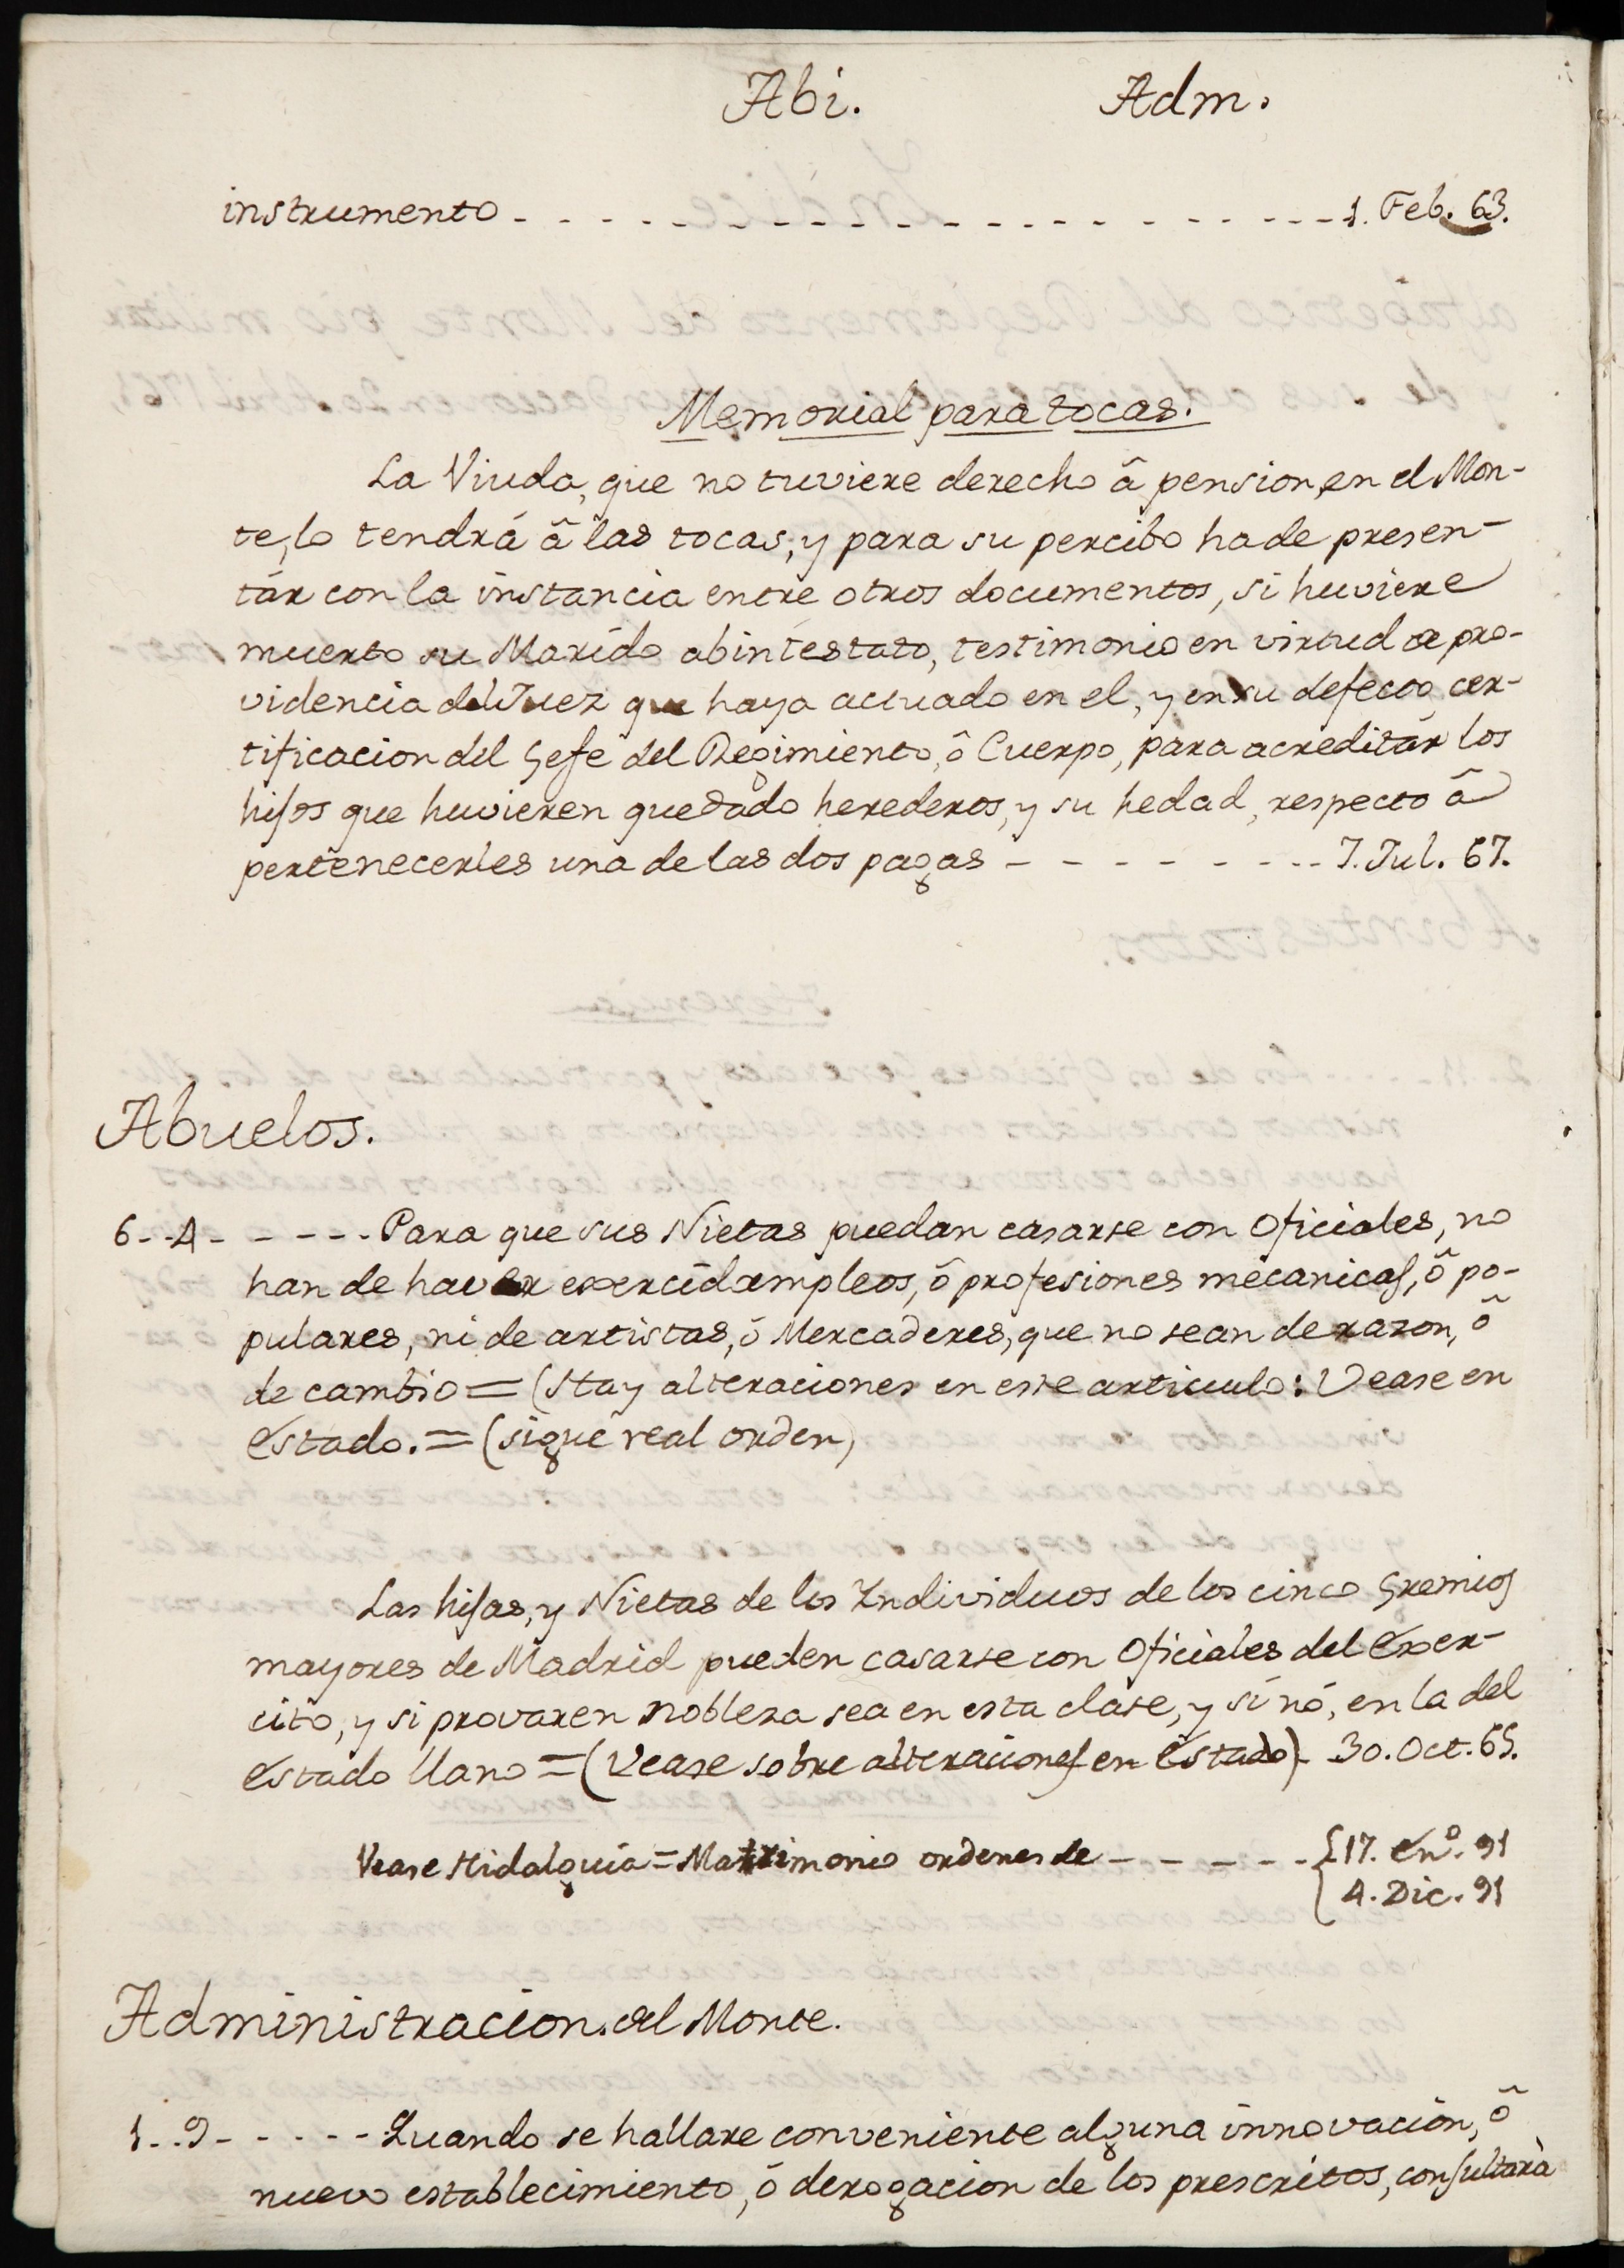 Abi. Adm.
instrumento - - - - - - - - - - - - - - - - - 1. Feb. 63.
Memorial para tocas.
La Viuda, que no tuviere derecho â pension, en el Mon-
te, lo tendrá â las tocas; y para su percibo ha de presen-
tár con la instancia entre otros documentos, si huviere
muerto su Marído abintestato, testimonio en virtud de pro-
videncia del Juez que haya actuado en el, y en su defecto, cer-
tificacion del Gefe del Regimiento, ô Cuerpo, para acreditár los
hijos que huvieren quedádo herederos, y su hedad, respecto â
pertenecerles una de las dos pagas - - - - - - - - - 7. Jul. 67.
Abuelos.
6 - - 4 - - - - - - Para que sus Nietas puedan casarse con Oficiales, no
han de haver exercído empleos, ô profesiones mecanicas, ô po-
pulares, ni de artistas, ô Mercaderes, que no sean de razon, ô
de cambio = (Hay alteraciones en este articulo: Vease en
Estado. = (sigue real orden)
Las hijas, y Nietas de los Individuos de los cinco Gremios
mayores de Madrid pueden casarse con Oficiales del Exer-
cito, y si provaren nobleza sea en esta clase, y si nó, en la del
Estado llano = (Vease sobre alteraciones en Estado) - 30. Oct. 65.
Vease Hidalguia = Matrimonio ordenes de - - - - - - {17. En.º 91
4. Dic. 91
Administracion. del Monte.
1 - - 9 - - - - - - Quando se hallare conveniente alguna innovación, ô
nuevo establecimiento, ô derogacion de los prescritos, consultará